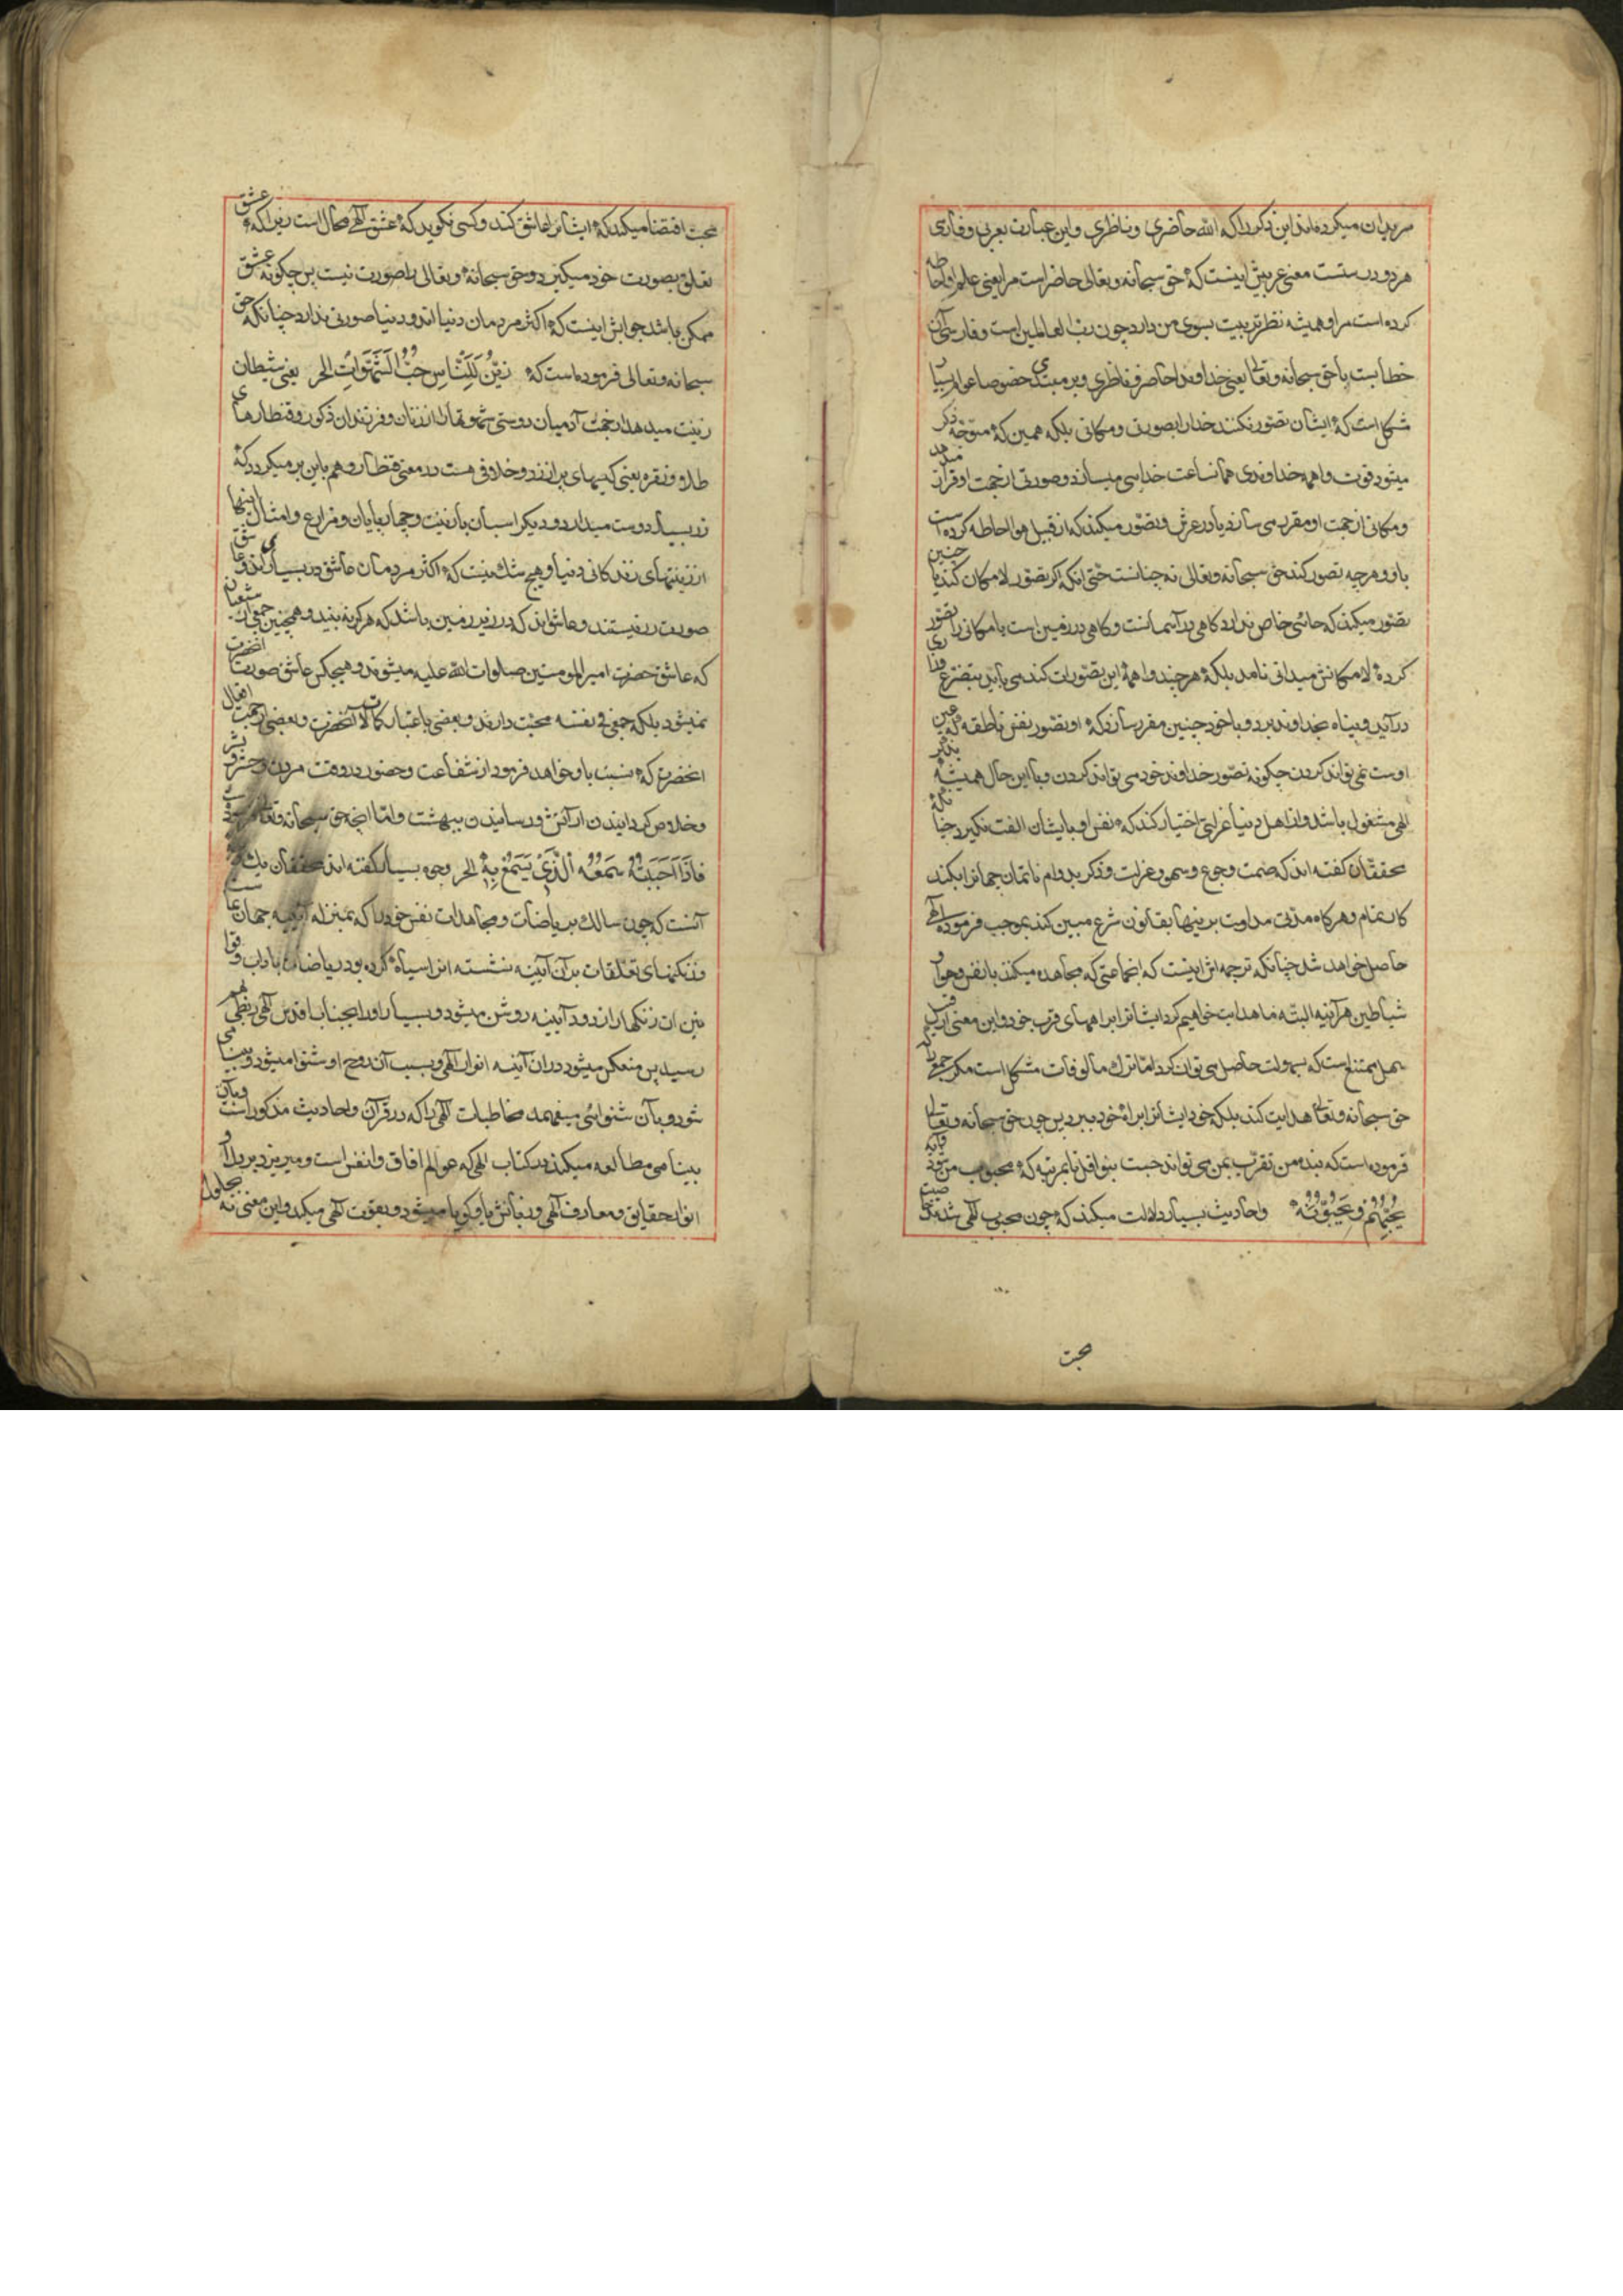 مریدان میکرده‌اند این ذکر را که الله حاضری و ناظری و این عبارت بعربی و فارسی
هر دو درستست معنی عربیش اینست که حق سبحانه و تعالی حاضر است مرا یعنی علم او احاطه
کرده است مرا و همیشه نظر تربیت بسوی من دارد چون رب العالمین است و فارسی آن
خطابست با حق سبحانه و تعالی یعنی خداوندا حاضر و ناظری و بر مبتدی خصوصا عوام بسیار
مشکل است که ایشان تصور نکنند خدا را بصورتی و مکانی بلکه همین که متوجه ذکر
میشود قوت واهمه خداوندی همانساعت خدایی میسازد و صورتی از جهت او قرار میدهد
و مکانی از جهت او مقرر می سازد یا در عرش و تصور میکند که از قبیل هوا احاطه کرده است
باو و هر چه تصور کند حق سبحانه و تعالی نه چنانست حتی آنکه اگر تصور لامکان کند یا چنین
تصور میکند که جائی خاص ندارد گاهی در آسمانست و گاهی در زمین است یا مکانی را تصور
کرده لامکانش میدانی نامد بلکه هر چند واهمه این تصورات کند می باید بتضرع و زاری
در آید و پناه بخداوند برد و با خود چنین مقرر سازد که او تصور نفس ناطقه که عین
اوست نمی تواند کردن چگونه تصور خداوند خود می تواند کردن و با این حال همیشه بذکر
الهی مشغول باشد و از اهل دنیا عزلتی اختیار کند که نفس او با ایشان الفت نگیرد چنانکه
محققان گفته اند که صمت و جوع و سهر و عزلت و ذکر بدوام ناتمامان جهانرا بکند
کار تمام و هر گاه مدتی مداومت برینها بقانون شرع مبین کند بموجب فرموده الهی
حاصل خواهد شد چنانکه ترجمه اش اینست که انجماعتی که مجاهده میکنند با نفس و هوا و
شیاطین هر آینه البته ما هدایت خواهیم کرد ایشانرا براههای قرب خود و این معنی از قبیل
سهل ممتنع است که بسهولت حاصل می توان کرد اما ترک مالوفات مشکل است مگر جمعی را که
حق سبحانه و تعالی هدایت کند بلکه خود ایشانرا براه خود ببرد پس چون حق سبحانه و تعالی
فرموده است که بنده من تقرب بمن می تواند جست بنوافل تا بمرتبه که محبوب من شود و آیه
یُحِبُّهُمْ وَ یُحِبُّونَهُ و احادیث بسیار دلالت میکند که چون محبوب الهی شدند خاصیت
محبت
محبت اقتضا میکند که ایشانرا عاشق کند و کسی نگوید که عشق الهی محال است زیرا که عشق
تعلق بصورت خود میگیرد و حق سبحانه و تعالی را صورت نیست پس چگونه عشق
ممکن باشد جوابش اینست که اکثر مردمان دنیا اند و دنیا صورتی ندارد چنانکه حق
سبحانه و تعالی فرموده است که زُیِّنَ لِلنَّاسِ حُبُّ الشَّهَوَاتِ الخ یعنی شیطان
زینت میدهد از جهت آدمیان دوستی شهوتها را از زنان و فرزندان ذکور و قنطارهای
طلا و نقره یعنی کیسهای پر از زر و خلافی هست در معنی قنطار و هم باین بر میگردد که
زر بسیار دوست میدارد و دیگر اسبان با زینت و چهارپایان و مزارع و امثال اینها
از زینتهای زندگانی دنیا و هیچ شک نیست که اکثر مردمان عاشق زر بسیاری اند و عاشق
صورت زر نیستند و عاشق اند که در زیر زمین باشد که هرگز نه بینند و همچنین جمعی از شیعیان
که عاشق حضرت امیر المومنین صلوات الله علیه میشوند و هیچکس عاشق صورت آنحضرت
نمیشود بلکه جمعی فی نفسه محبت دارند و بعضی باعتبار کمالات آنحضرت و بعضی از جهت افعال
آنحضرت که نسبت باو خواهد فرمود از شفاعت و حضور در وقت مردن و حشر و نشر
و خلاص گردانیدن از آتش و رسانیدن ببهشت و اما آنچه حق سبحانه و تعالی فرموده است
فَإِذَا أَحْبَبْتُهُ سَمْعُهُ الَّذِی یَسْمَعُ بِهِ الخ وجوه بسیار گفته اند محققان یک
آنست که چون سالک بریاضات و مجاهدات نفس خود را که بمنزله آیینه جهان نما است
و زنگهای تعلقات بر آن آیینه نشسته انرا سیاه کرده بود بریاضات با داب و قوا
نین ان زنگها را زدود آیینه روشن میشود و بسیار او را بجناب اقدس الهی ربطی بهم
رسید پس منعکس میشود در ان آینه انوار الهی و بسبب آن روح او شنوا میشود و بینا می
شود و بآن شنوائی میفهمد مخاطبات الهی را که در قرآن و احادیث مذکور است و بآن
بینا می مطالعه میکند در کتاب الهی که عوالم آفاق و انفس است و میریزد بر دل او
انوار حقایق و معارف الهی و زبانش باو گویا میشود و بقوت الهی میکند و این معنی نه بحلول